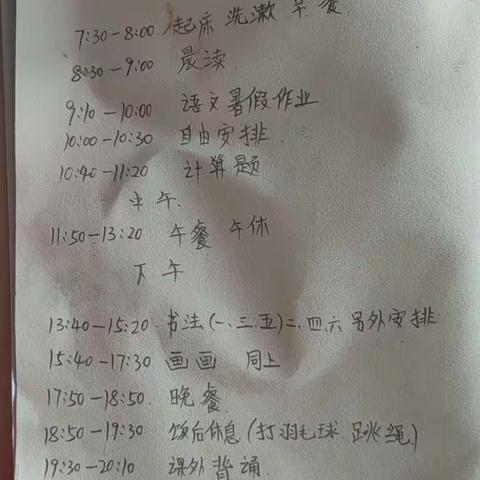 7:30-8:00. 起床 洗漱 早餐
8:30-9:00 晨读.
9:10-10:00 语文暑假作业
10:00-10:30 自由安排.
10:40-11:20 计算题
中午.
11:50-13:20 午餐 午休
下午
13:40-15:20. 书法(一、三、五)二、四、六 另外安排
15:40-17:30 画画 同上
17:50-18:50. 晚餐.
18:50-19:30 饭后休息(打羽毛球.跳绳.)
19:30-20:10 课外背诵.